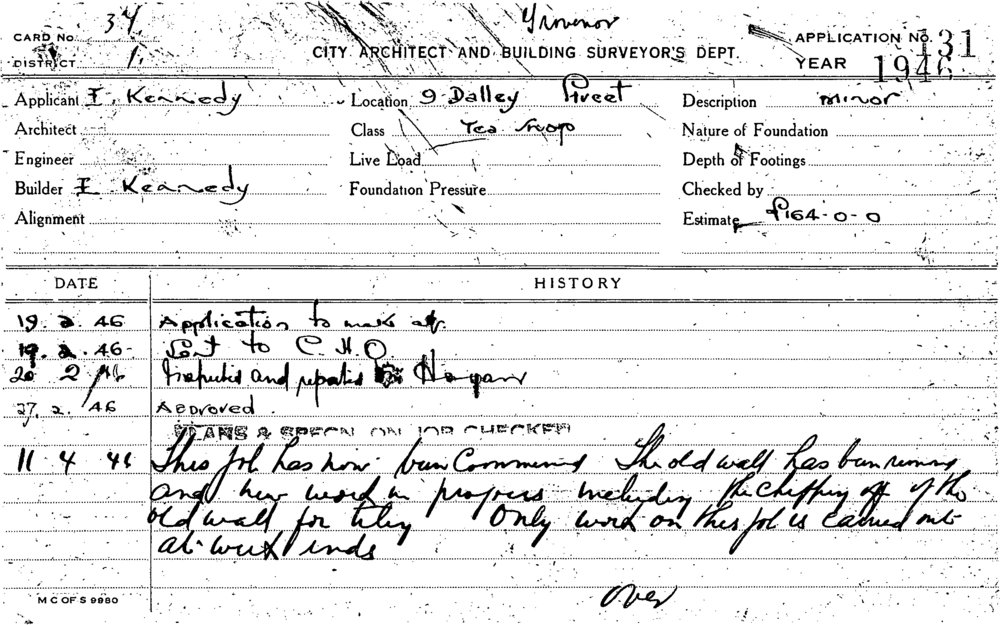 Grovenor
CARD No 34
DISTRICT 1.
CITY ARCHITECT AND BUILDING SURVEYOR'S DEPT.
APPLICATION No. 131
YEAR 1946
Applicant I. Kennedy
Location 9 Dalley Street
Description minor
Architect
Class Tea Shop
Nature of Foundation
Engineer
Live Load
Depth of Footings
Builder I. Kennedy
Foundation Pressure
Checked by
Alignment
Estimate £164-0-0
DATE HISTORY
19. 2. 46 Application to make alt.
19. 2. 46- Sent to C.H.O.
20 2 46 Inspected and reported Hogan
27. 2. 46 Approved.
PLANS & SPECN. ON JOB CHECKED
11 4 46 This job has now been Commenced The old wall has been removed
and new work in progress including the chipping off of the
old wall for tiling Only work on this job is carried out
at week ends
Over
M C OF S 9980